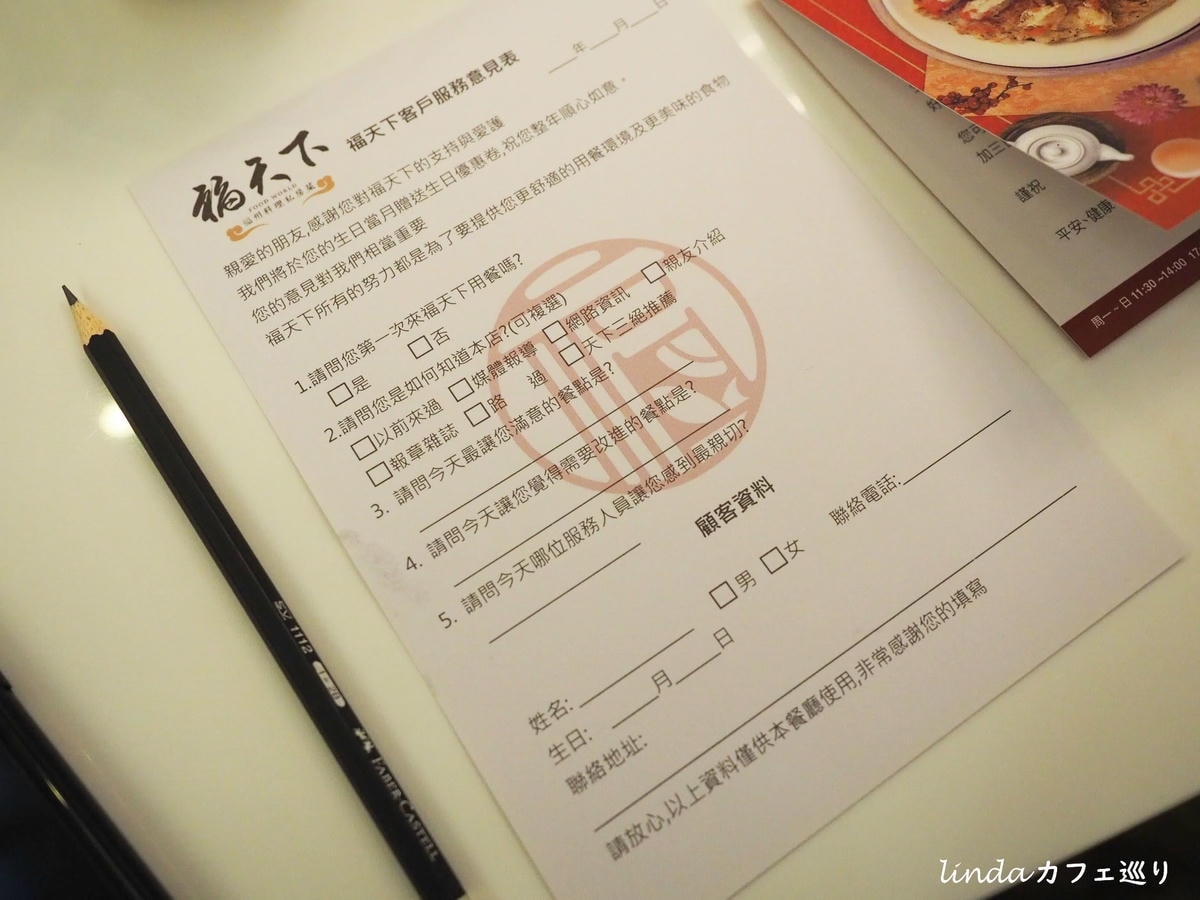 ___年___月___日
福天下
FOOD WORLD
福州料理私房菜
福天下客戶服務意見表
親愛的朋友,感謝您對福天下的支持與愛護
我們將於您的生日當月贈送生日優惠卷,祝您整年順心如意。
您的意見對我們相當重要
福天下所有的努力都是為了要提供您更舒適的用餐環境及更美味的食物
1.請問您第一次來福天下用餐嗎?
□是 □否
2.請問您是如何知道本店?(可複選)
□以前來過 □媒體報導 □網路資訊 □親友介紹
□報章雜誌 □路 過 □天下三絕推薦
3. 請問今天最讓您滿意的餐點是?
4. 請問今天讓您覺得需要改進的餐點是?
5. 請問今天哪位服務人員讓您感到最親切?
顧客資料
姓名: □男 □女 聯絡電話:
生日: ___月___日
聯絡地址:
請放心,以上資料僅供本餐廳使用,非常感謝您的填寫
您可
加三
謹祝
平安、健康
周一~日 11:30~14:00 17
SV 1112
FABER-CASTELL
lindaカフェ巡り